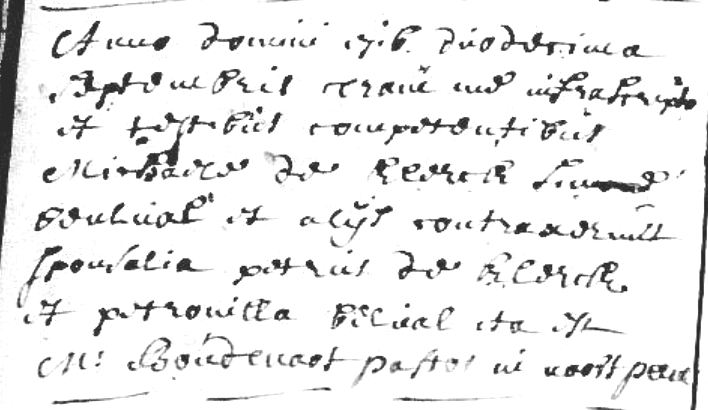 Anno domini 1716 duodecima
Septembris coram me infrascripto
et testibus competentibus
Michaele de Klerck Simone
beulval et alijs contraxerunt
sponsalia petrus de Klerck
et petronilla belval ita est
M: Boudenaot pastor in noortpeene